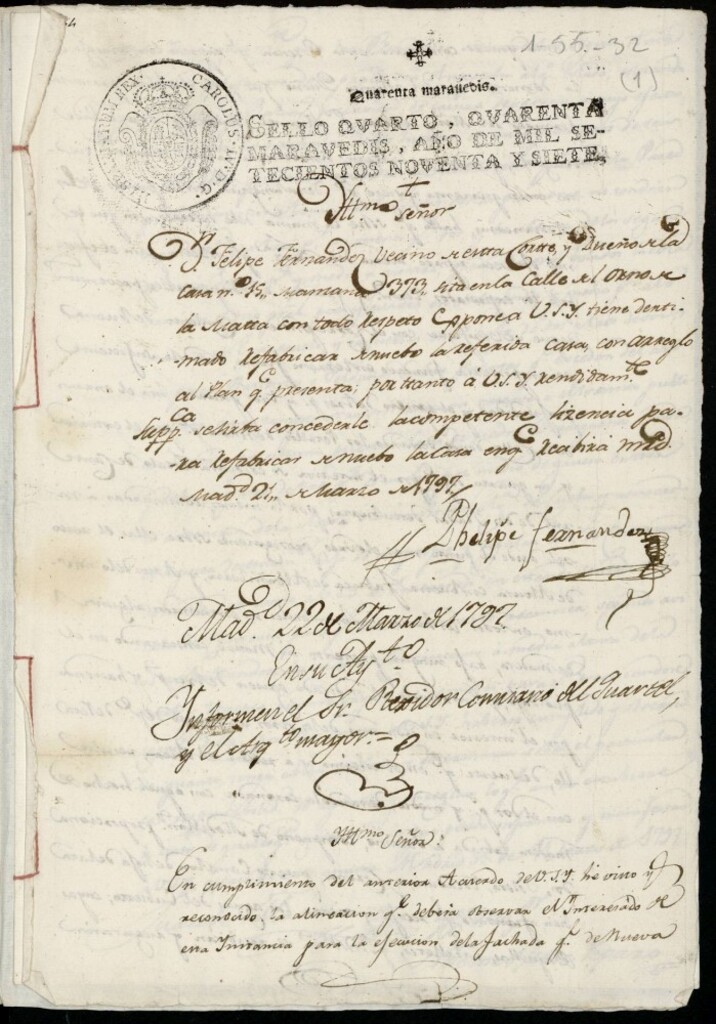 1-55-32
(1)
Quarenta marauedis.
CAROLUS IV D. G. HISPANIAR REX.
SELLO QVARTO, QVARENTA
MARAVEDIS, AÑO DE MIL SE-
TECIENTOS NOVENTA Y SIETE,
Yttmo Señor
Dn. Felipe Fernandez Vecino de esta Corte, y Dueño de la
Casa n.o 15,, Manzana 373, sita en la Calle del Orno de
la Matta con todo respeto Expone a V.S.Y. tiene desti-
nado Refabricar de nuebo la referida casa, con arreglo
al Plan q.e presenta; por tanto à V.S.Y. rendidam.te
Supp.ca se sirba concederle la competente lizencia pa-
ra Refabricar de nuebo la Casa en q.e Recibirá mrd.
Mad.d 21,, de Marzo de 1797,,
Phelipe Fernandez
Mad.d 22 de Marzo de 1797.
En su Ay.to
Ynformen el Sr. Rexidor Comisario del Quartel,
y el Arq.to mayor.=
Yttmo Señor:
En cumplimiento del anterior Acuerdo de V.S.Y. he visto y
reconocido, la alineacion q.e deberá observar el Interesado de
esta Instancia para la ejecucion de la fachada q.e de Nueva